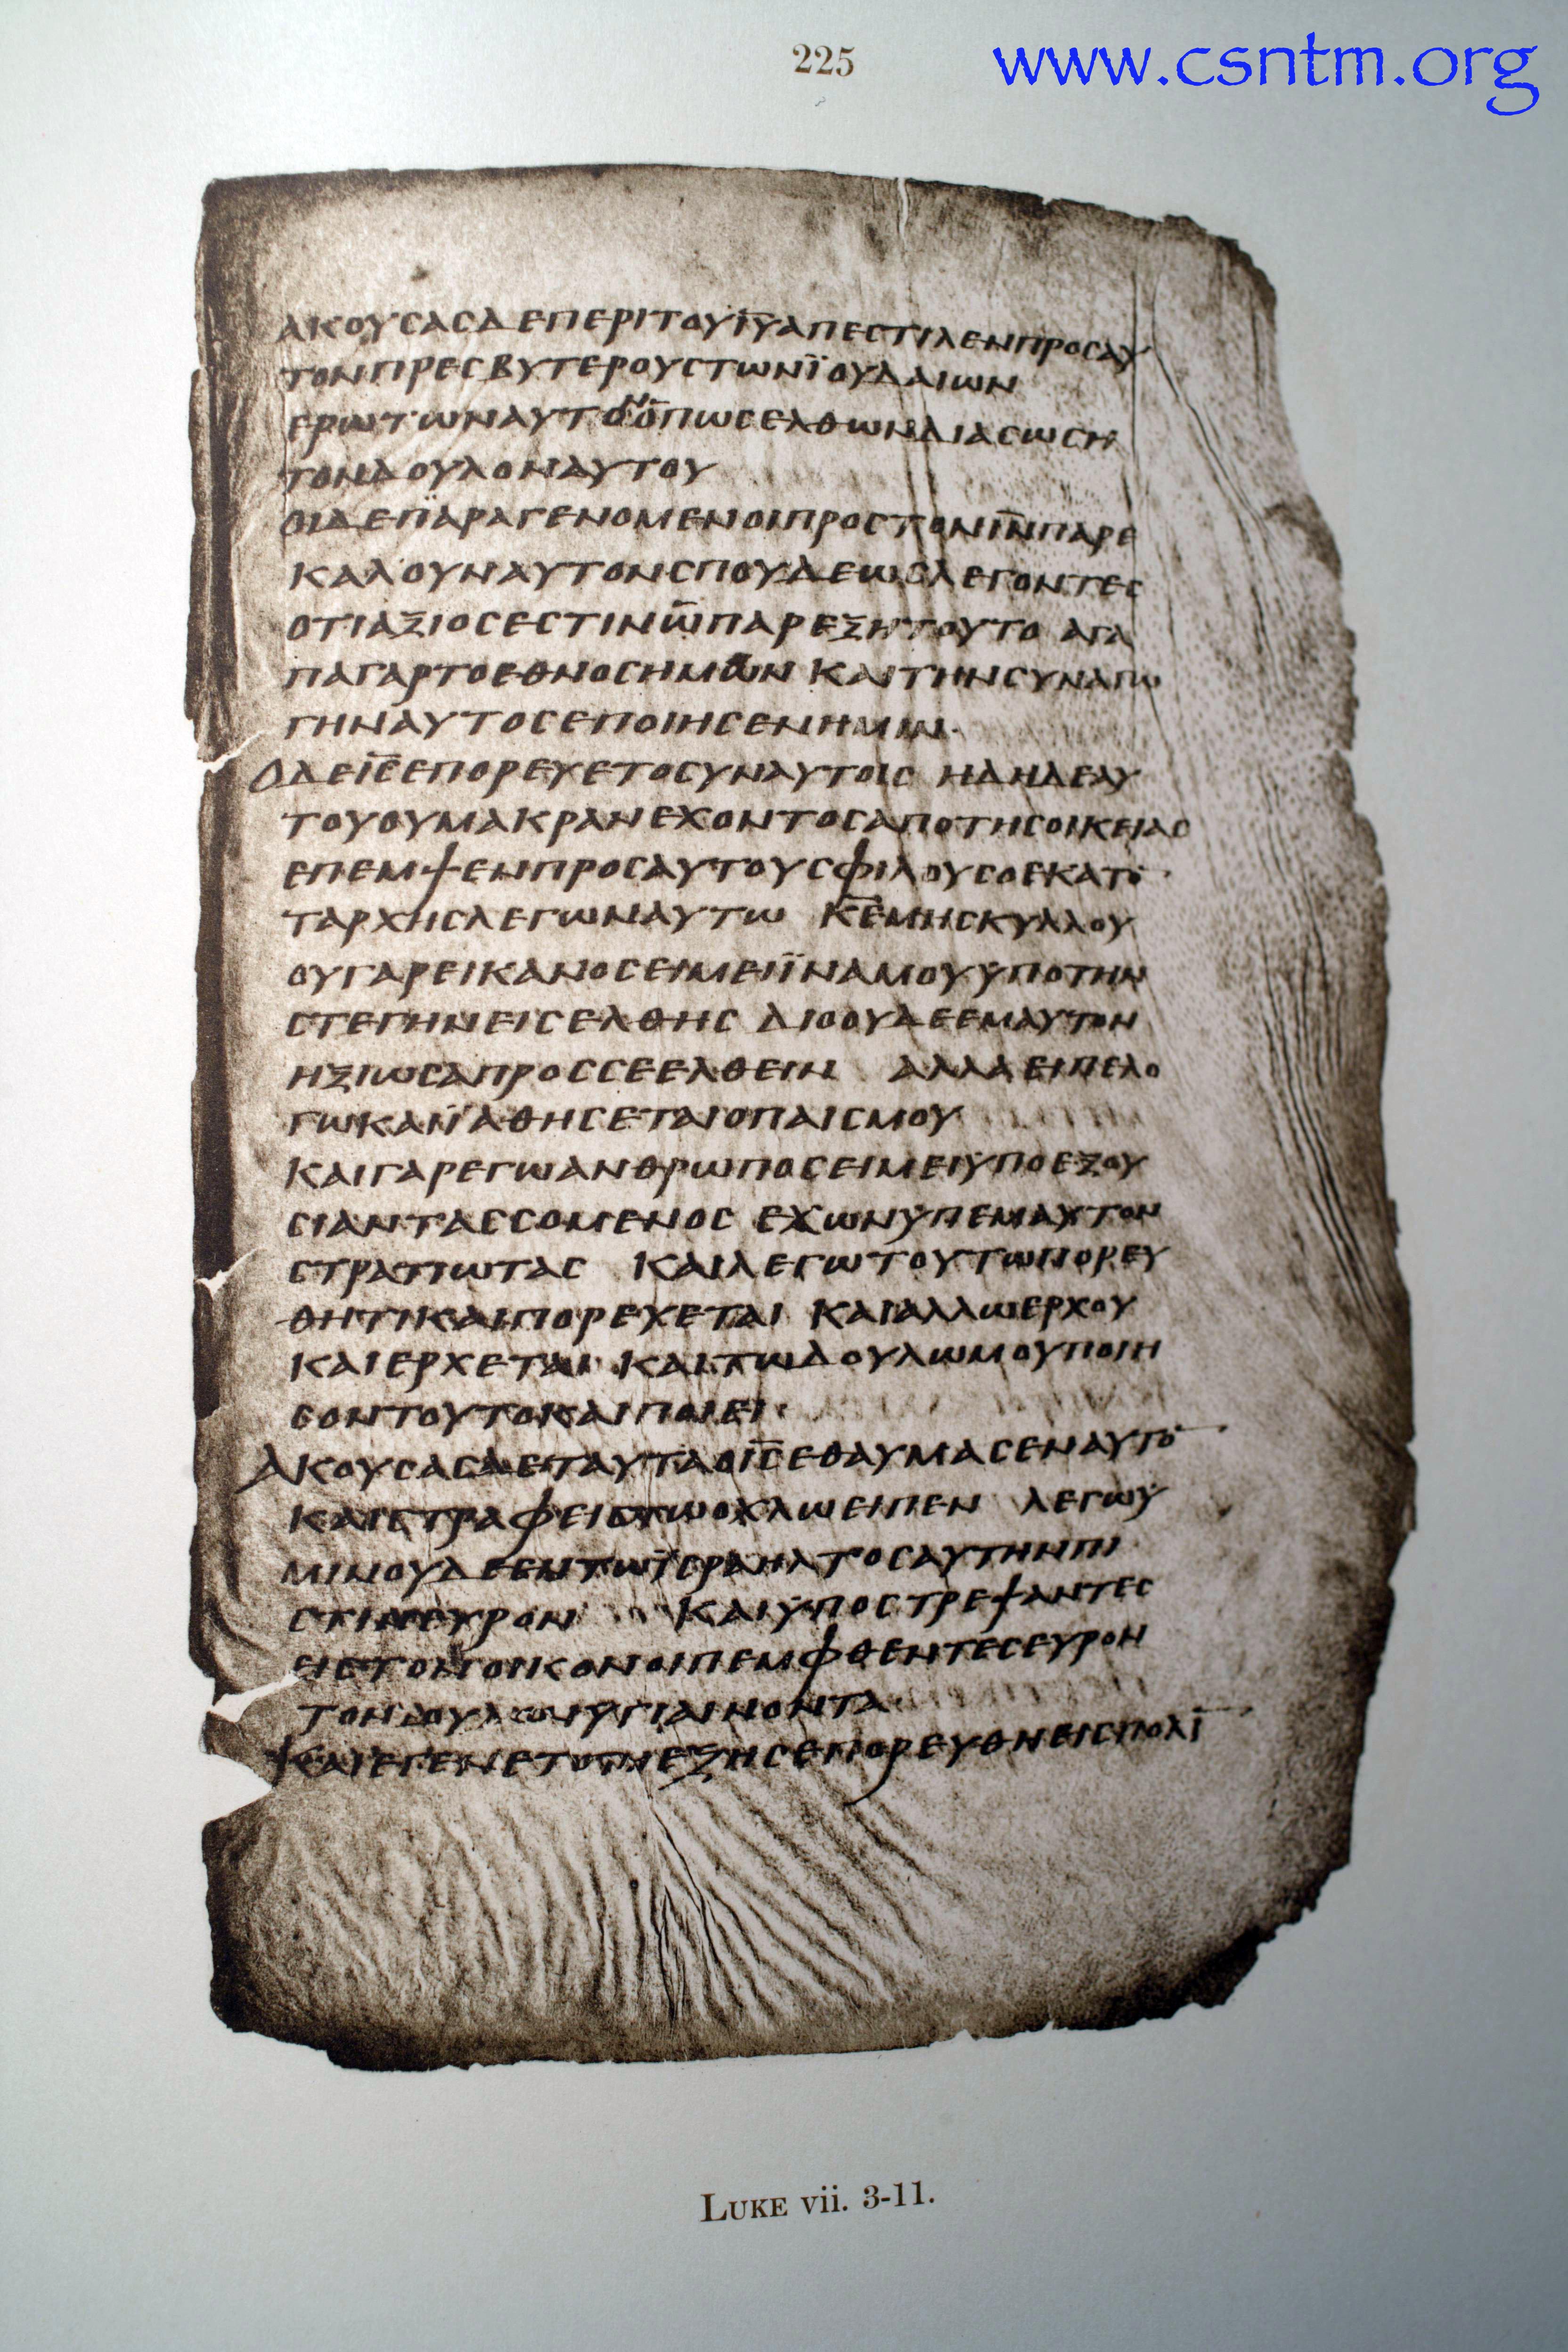 225
www.csntm.org
ΑΚΟΥCΑCΔΕΠΕΡΙΤΟΥΙ̅Υ̅ΑΠΕCΤΙΛΕΝΠΡΟCΑΥ
ΤΟΝΠΡΕCΒΥΤΕΡΟΥCΤΩΝΪΟΥΔΑΙΩΝ
ΕΡΩΤΩΝΑΥΤΟΝΟΠΩCΕΛΘΩΝΔΙΑCΩCΗ
ΤΟΝΔΟΥΛΟΝΑΥΤΟΥ
ΟΙΔΕΠΑΡΑΓΕΝΟΜΕΝΟΙΠΡΟCΤΟΝΙ̅Ν̅ΠΑΡΕ
ΚΑΛΟΥΝΑΥΤΟΝCΠΟΥΔΕΩCΛΕΓΟΝΤΕC
ΟΤΙΑΞΙΟCΕCΤΙΝΩΠΑΡΕΞΗΤΟΥΤΟ ΑΓΑ
ΠΑΓΑΡΤΟΕΘΝΟCΗΜΩΝ ΚΑΙΤΗΝCΥΝΑΓΩ
ΓΗΝΑΥΤΟCΕΠΟΙΗCΕΝΗΜΙΝ·
ΟΔΕΙ̅C̅ΕΠΟΡΕΥΕΤΟCΥΝΑΥΤΟΙC ΗΔΗΔΕΑΥ
ΤΟΥΟΥΜΑΚΡΑΝΕΧΟΝΤΟCΑΠΟΤΗCΟΙΚΕΙΑC
ΕΠΕΜΨΕΝΠΡΟCΑΥΤΟΥCΦΙΛΟΥCΟΕΚΑΤΟ̅
ΤΑΡΧΗCΛΕΓΩΝΑΥΤΩ Κ̅Ε̅ΜΗCΚΥΛΛΟΥ
ΟΥΓΑΡΕΙΚΑΝΟCΕΙΜΕΙΪΝΑΜΟΥΫΠΟΤΗΝ
CΤΕΓΗΝΕΙCΕΛΘΗC ΔΙΟΟΥΔΕΕΜΑΥΤΟΝ
ΗΞΙΩCΑΠΡΟCCΕΕΛΘΕΙΝ ΑΛΛΑΕΙΠΕΛΟ
ΓΩΚΑΝΑΘΗCΕΤΑΙΟΠΑΙCΜΟΥ
ΚΑΙΓΑΡΕΓΩΑΝΘΡΩΠΟCΕΙΜΕΙΫΠΟΕΞΟΥ
CΙΑΝΤΑCCΟΜΕΝΟC ΕΧΩΝΫΠΕΜΑΥΤΟΝ
CΤΡΑΤΙΩΤΑC ΚΑΙΛΕΓΩΤΟΥΤΩΠΟΡΕΥ
ΘΗΤΙΚΑΙΠΟΡΕΧΕΤΑΙ ΚΑΙΑΛΛΩΕΡΧΟΥ
ΚΑΙΕΡΧΕΤΑΙ ΚΑΙΤΩΔΟΥΛΩΜΟΥΠΟΙΗ
CΟΝΤΟΥΤΟΚΑΙΠΟΙΕΙ·
ΑΚΟΥCΑCΔΕΤΑΥΤΑΟΙ̅C̅ΕΘΑΥΜΑCΕΝΑΥΤΟ̅
ΚΑΙCΤΡΑΦΕΙCΤΩΟΧΛΩΕΙΠΕΝ ΛΕΓΩΫ
ΜΙΝΟΥΔΕΕΝΤΩΪCΡΑΗΛΤΟCΑΥΤΗΝΠΙ
CΤΙΝΕΥΡΟΝ ΚΑΙΫΠΟCΤΡΕΨΑΝΤΕC
ΕΙCΤΟΝΟΙΚΟΝΟΙΠΕΜΦΘΕΝΤΕCΕΥΡΟΝ
ΤΟΝΔΟΥΛΟΝΫΓΙΑΙΝΟΝΤΑ
ΚΑΙΕΓΕΝΕΤΟΤΗΕΞΗCΕΠΟΡΕΥΘΗΕΙCΠΟΛΙ̅
LUKE vii. 3-11.